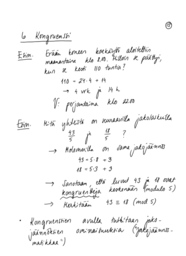 6 Kongruenssi
Esim. Erään koneen korjaus aloitettiin
maanantaina klo 8.00. Milloin se päättyi,
kun se kesti 110 tuntia?
110 = 24·4 + 14
→ 4 vrk ja 14 h
V: perjantaina klo 22.00
Esim. Mitä yhteistä on seuraavilla jakolaskuilla
43/5 ja 18/5 ?
→ Molemmilla on sama jakojäännös
43 = 5·8 + 3
18 = 5·3 + 3
→ Sanotaan, että luvut 43 ja 18 ovat
kongruentteja keskenään (modulo 5)
→ Merkitään 43 ≡ 18 (mod 5)
• Kongruenssin avulla tutkitaan jako-
jäännöksen ominaisuuksia